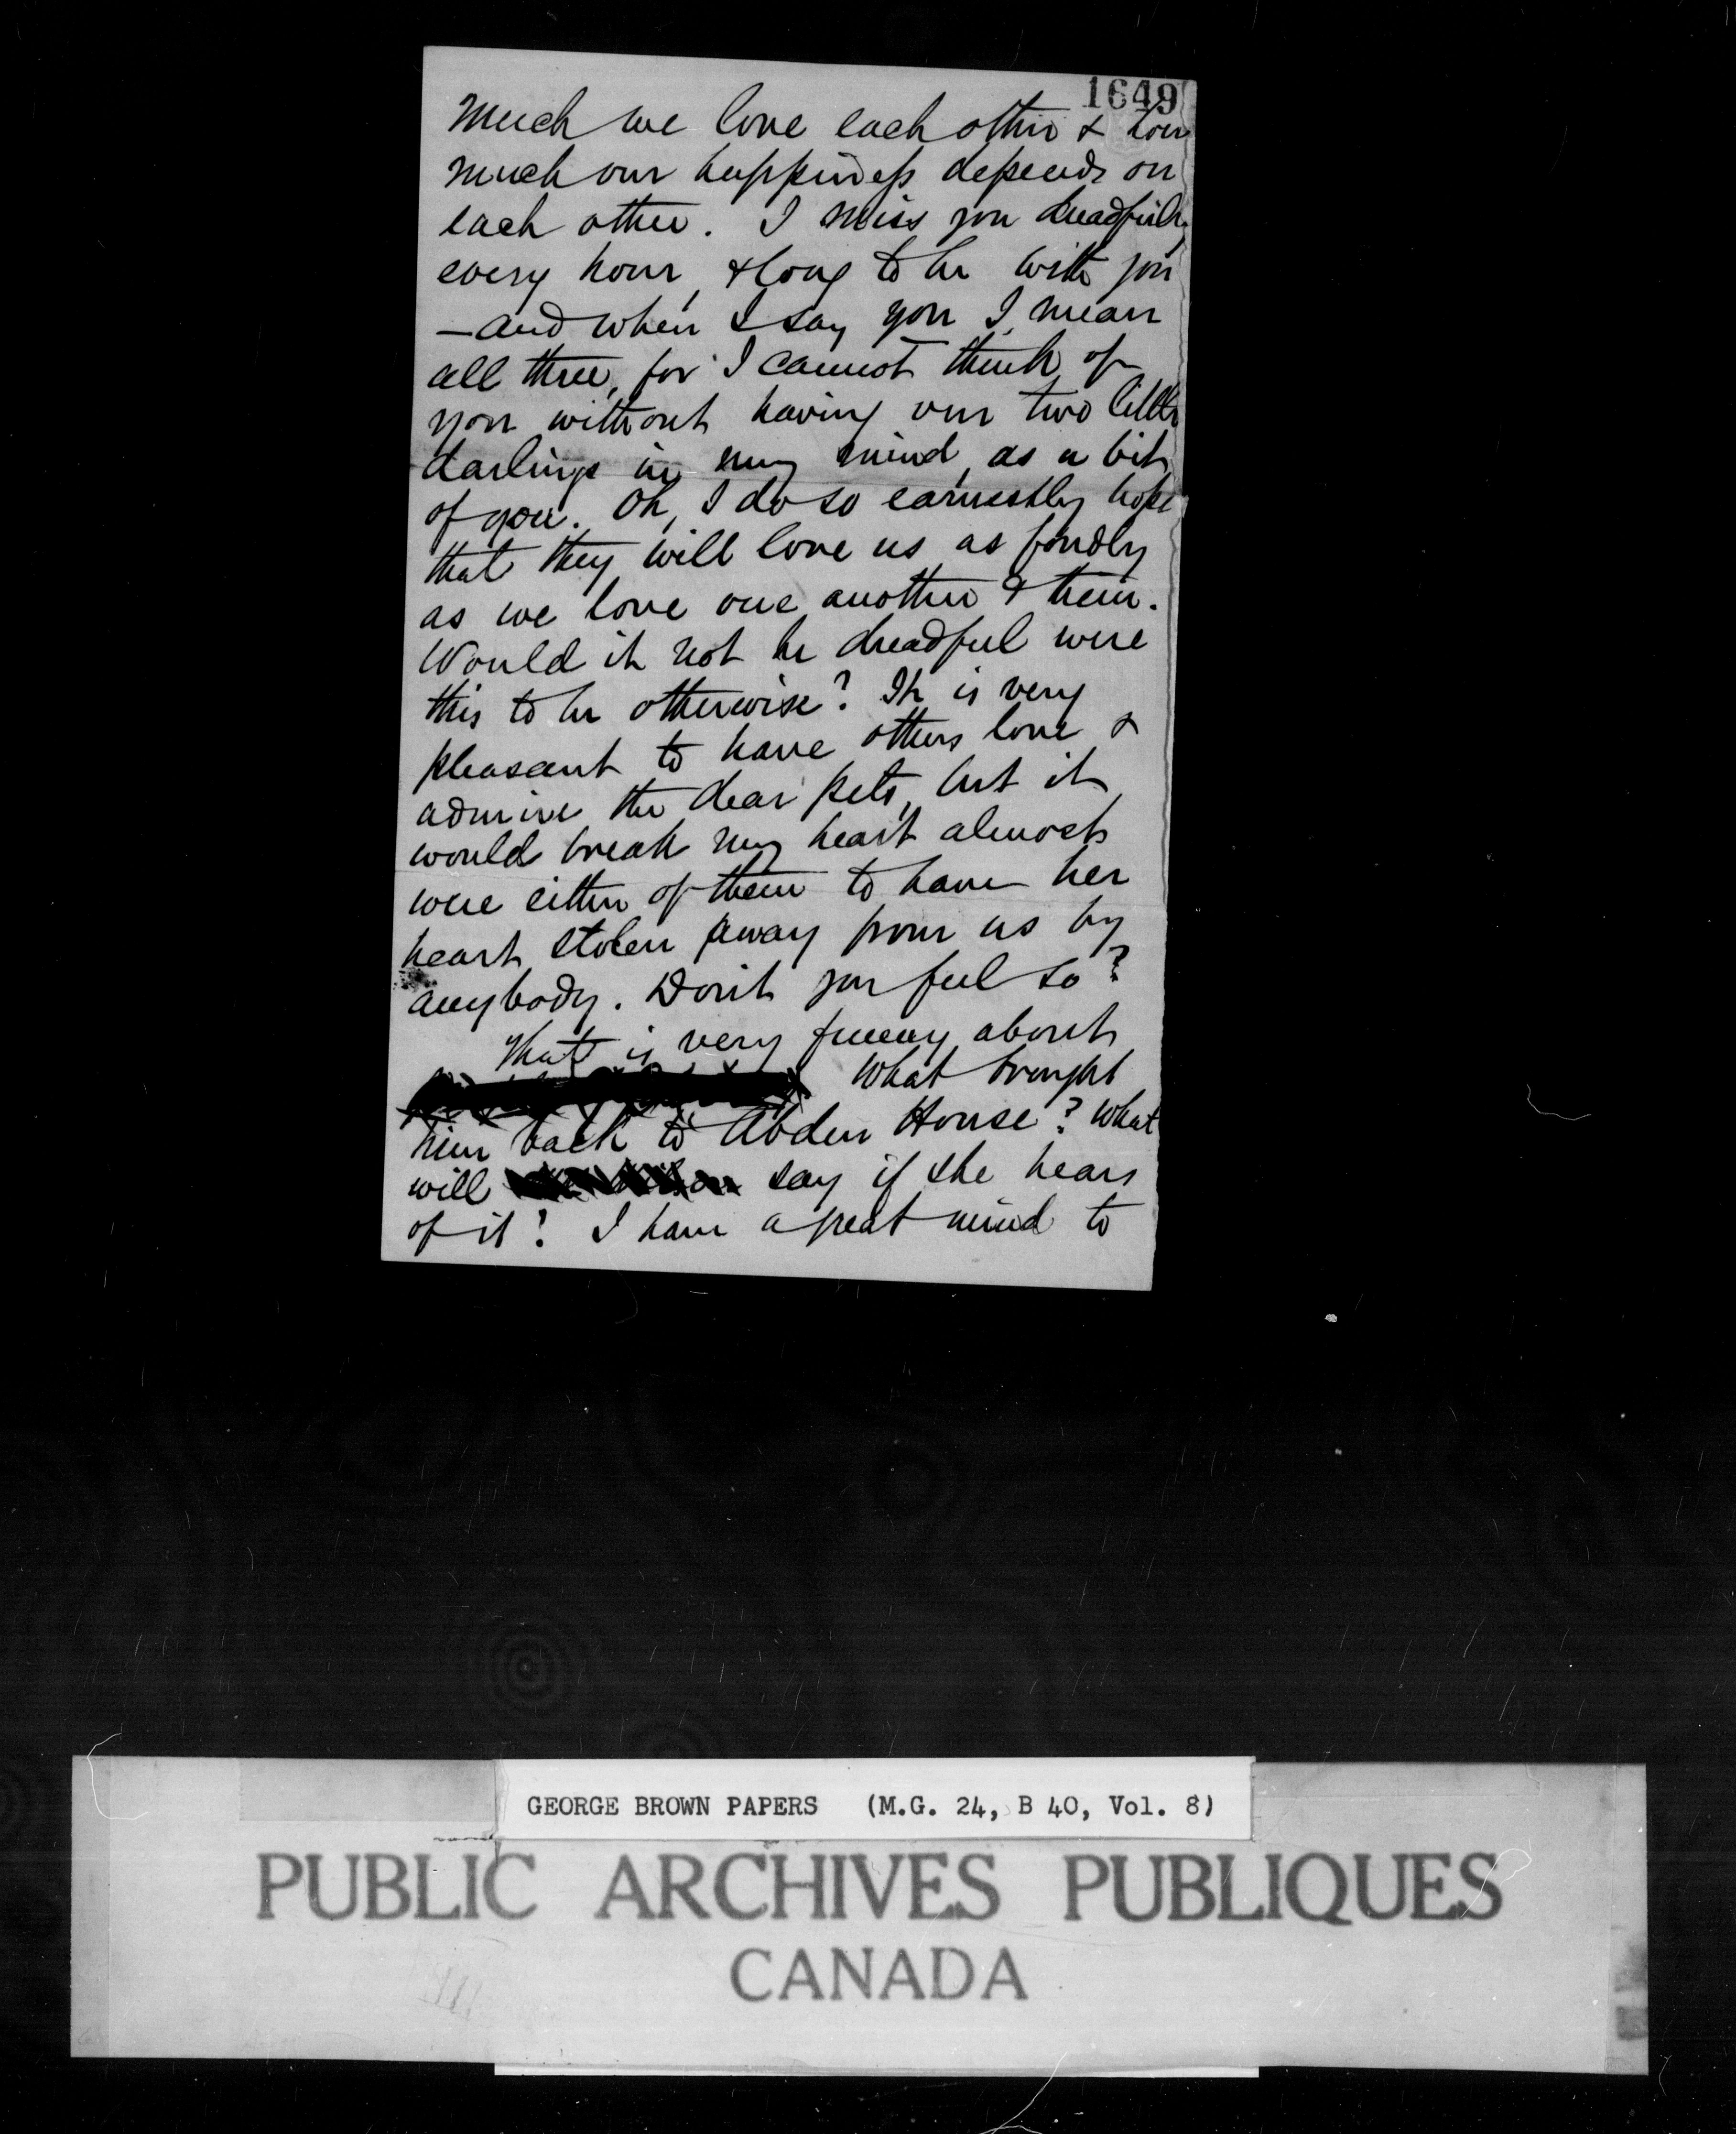 1649
much we love each other & how
much our happiness depends on
each other. I miss you dreadfully
every hour, & long to be with you
— and when I say you I mean
all three, for I cannot think of
you without having our two little
darlings in my mind, as a bit
of you. Oh, I do so earnestly hope
that they will love us as fondly
as we love one another & them.
Would it not be dreadful were
this to be otherwise? It is very
pleasant to have others love &
admire the dear pets, but it
would break my heart almost
were either of them to have her
heart stolen away from us by
anybody. Don't you feel so?
That is very funny about
What brought
him back to Abden House? What
will say if she hears
of it! I have a great mind to
GEORGE BROWN PAPERS (M.G. 24, B 40, Vol. 8)
PUBLIC ARCHIVES PUBLIQUES
CANADA